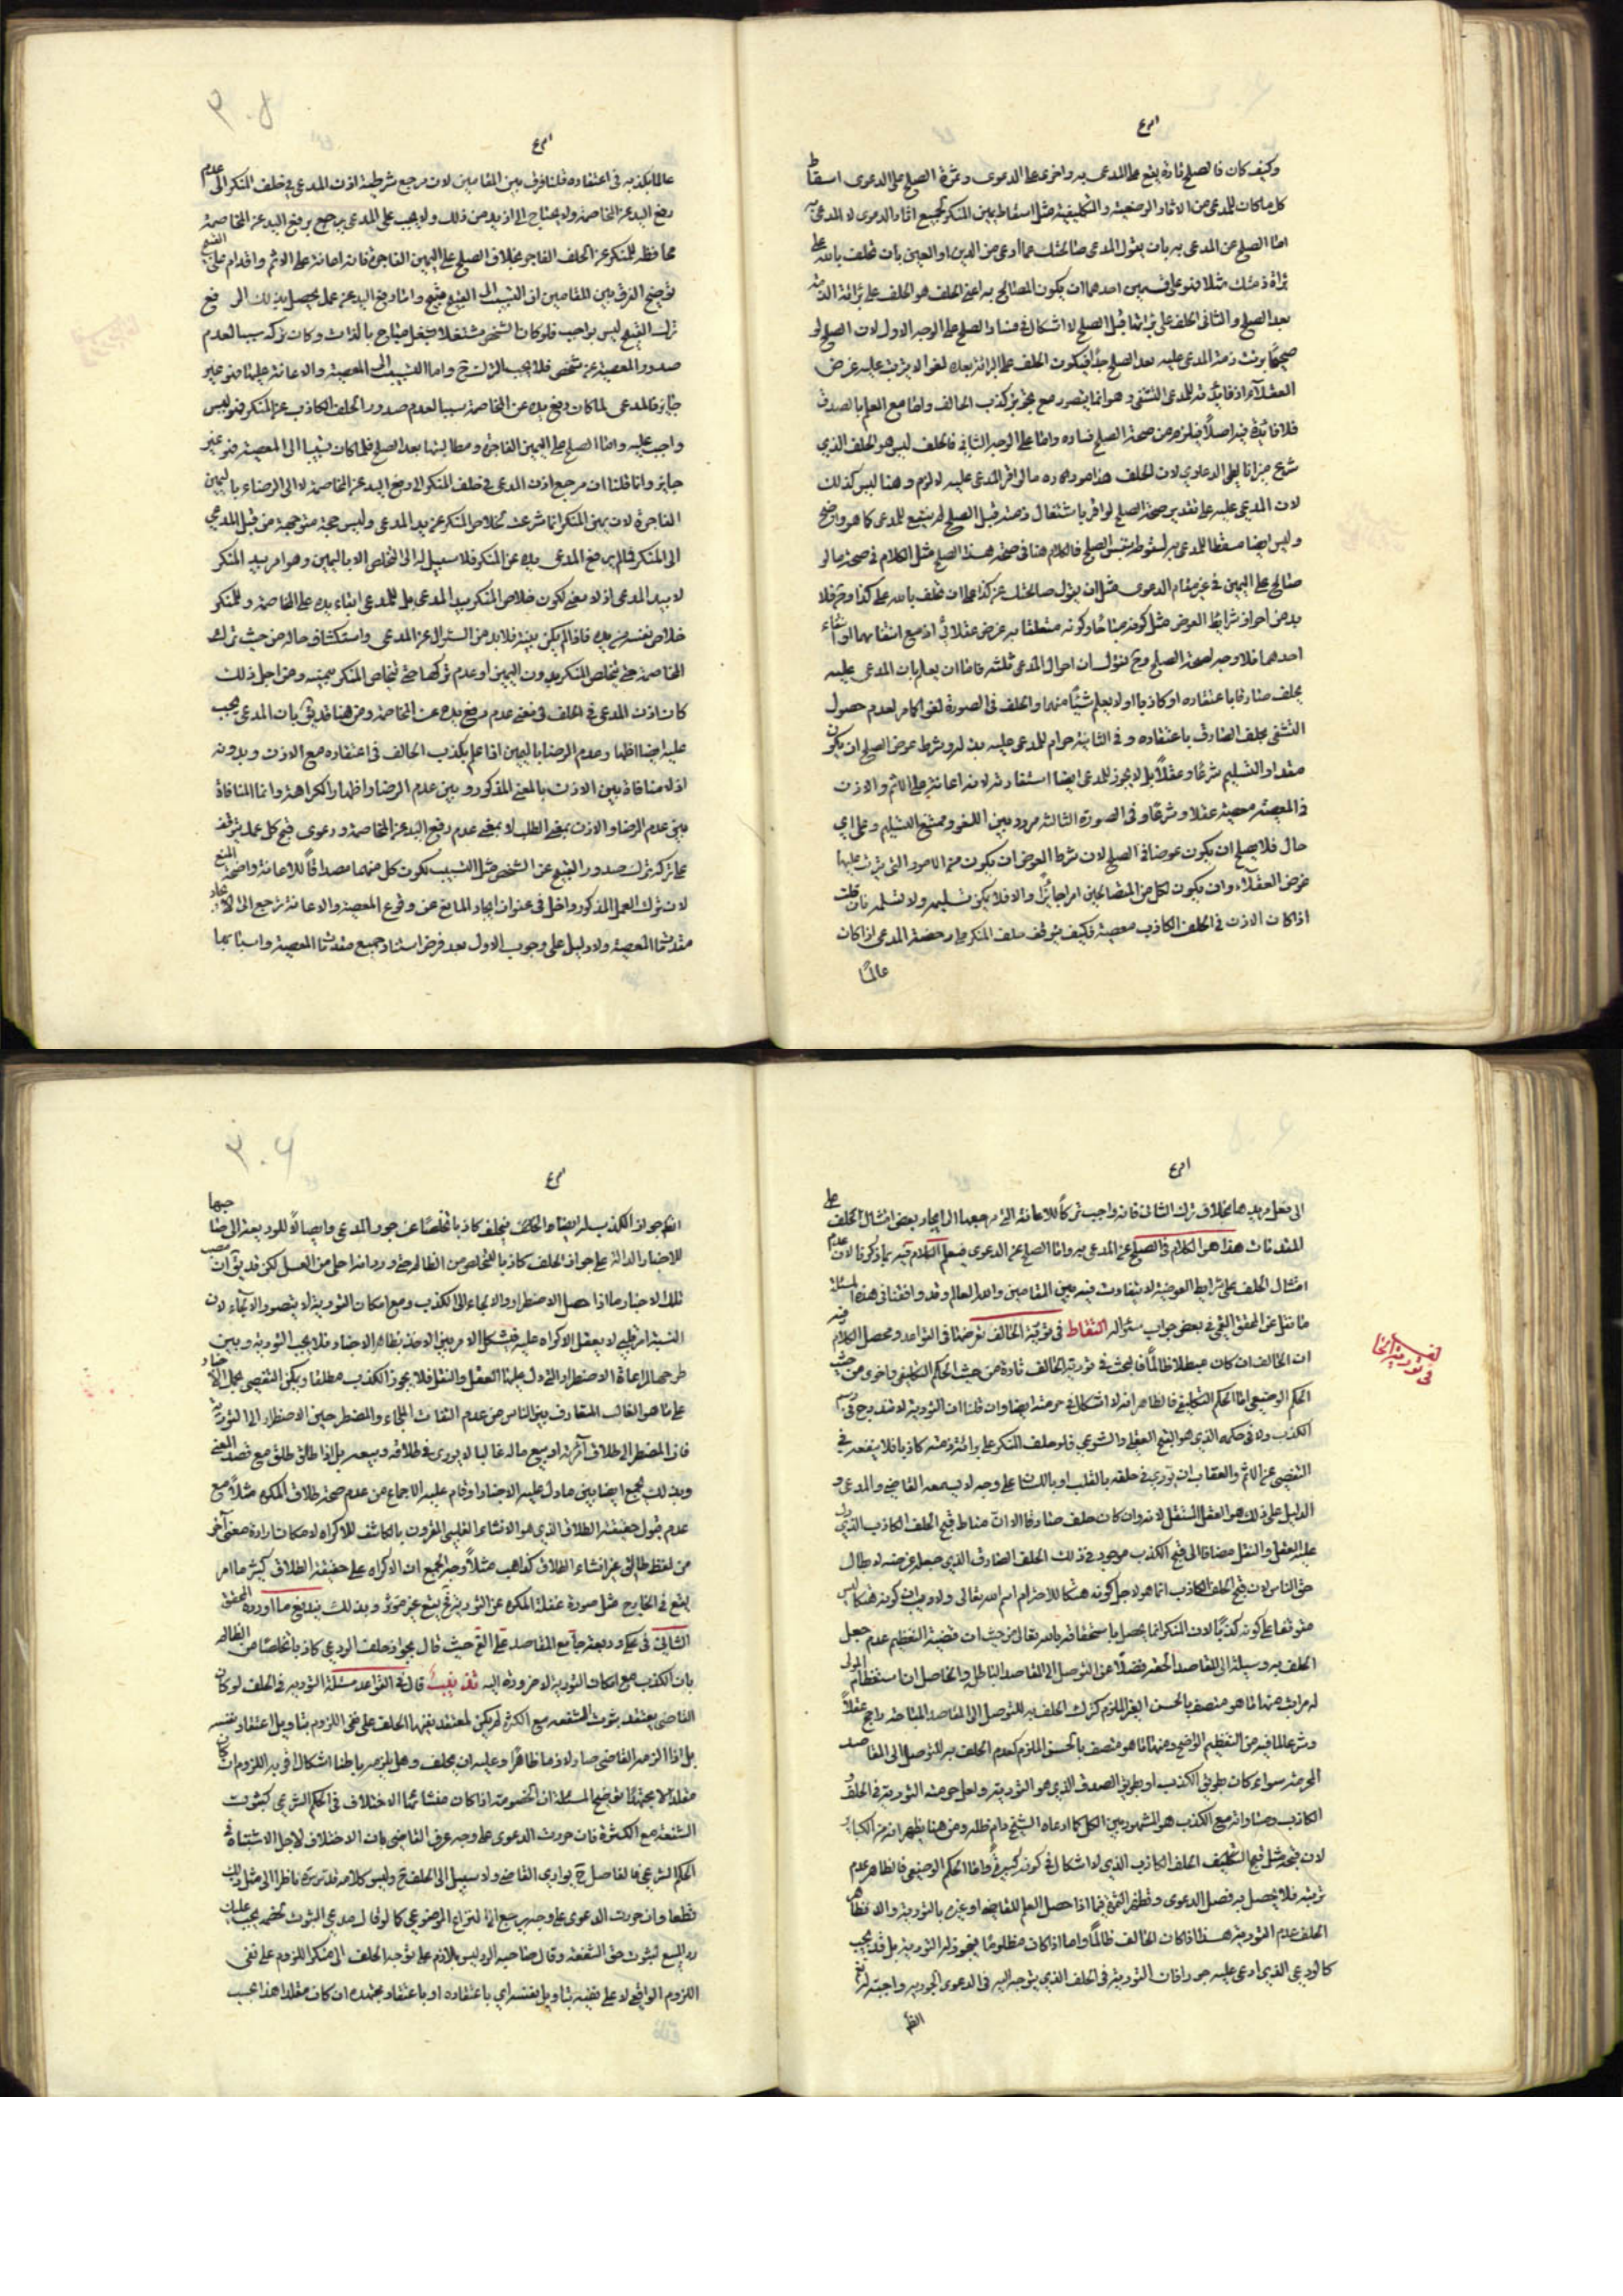 وكيف كان فالصلح تارة يقع على المدعى به واخرى على الدعوى وثمرة الصلح على الدعوى اسقاط
كل ما كان للمدعى من الاثار الوضعية والتكليفية مثل اسقاط يمين المنكر وجميع اثار الدعوى لا المدعى به
اما الصلح عن المدعى به بان يقول المدعى صالحتك عما ادعى من الدين او العين بان تحلف بالله على
برائة ذمتك مثلا فهو على قسمين احدهما ان يكون المصالح به اعنى الحلف هو الحلف على برائة الذمة
بعد الصلح والثانى الحلف على برائتها قبل الصلح لا اشكال فى فساد الصلح على الوجه الاول لان الصلح لو
صحيحا برئت ذمة المدعى عليه بعد الصلح جدا فيكون الحلف على البرائة بعده لغوا لا يترتب عليه غرض
العقلاء اذ فائدته للمدعى التشفى وهو انما يتصور مع تجويز كذب الحالف واما مع العلم بالصدق
فلا فائدة فيه اصلا فيلزم من صحة الصلح فساده واما على الوجه الثانى فالحلف ليس هو الحلف الذى
شرع ميزانا لدعاوى لان الحلف هذا مورده ما لو اقر المدعى عليه لالزم وهنا ليس كذلك
لان المدعى عليه على تقدير صحة الصلح لو اقر باشتغال ذمته قبل الصلح لم ينتفع للمدعى كما هو واضح
وليس ايضا مسقطا للمدعى به لسقوطه بنفس الصلح فالكلام هنا فى صحة هذا الصلح مثل الكلام فى صحة ما لو
صالح على اليمين فى غير مقام الدعوى مثل ان يقول صالحتك عن كذا على ان تحلف بالله على كذا وح فلا
بد من احراز شرائط العوض مثل كونه مباحا وكونه متعلقا به غرض عقلائى اذ مع انتفائهما او انتفاء
احدهما فلا وجه لصحة الصلح وح نقول ان احوال المدعى ثلثة فاما ان يعلم بان المدعى عليه
يحلف صادقا باعتقاده او كاذبا او لا يعلم شيئا منهما والحلف فى الصورة لغو كامر لعدم حصول
التشفى بحلف الصادق باعتقاده وفى الثانية حرام للمدعى عليه بذله وشرط عوض الصلح ان يكون
مقدور التسليم شرعا وعقلا بل لا يجوز للمدعى ايضا استفادته لانه اعانة على الاثم والاذن
فى المعصية معصية عقلا وشرعا وفى الصورة الثالثة مردد بين اللغو وممتنع التسليم وعلى اى
حال فلا يصلح ان يكون عوضا فى الصلح لان شرط العوض ان يكون من الامور التى يترتب عليها
غرض العقلاء وان يكون لكل من المتصالحين امرا جائزا والا فلا يمكن تسليمه ولا تسلمه فان قلت
اذا كان الاذن فى الحلف الكاذب معصية فكيف يتوقف حلف المنكر على رخصة المدعى اذا كان
عالما
٣٠٥
عالما بكذبه فى اعتقاده قلنا فرق بين المقامين لان مرجع شرطية اذن المدعى فى حلف المنكر الى عدم
رفع اليد عن المخاصمة ولا يحتاج الى ازيد من ذلك ولا يجب على المدعى يرجع برفع اليد عن المخاصمة
محافظة للمنكر عن الحلف الفاجر بخلاف الصلح على اليمين الفاجرة فانه اعانة على الاثم واقدام على القبيح
توضيح الفرق بين المقامين ان التسبيب الى القبيح قبيح واما رفع اليد عن عمل يحصل بذلك الرفع
ترك القبيح ليس بواجب فلو كان الشخص مشتغلا بشغل مباح بالذات وكان تركه سببا لعدم
صدور المعصية عن شخص فلا يجب الترك ح واما التسبيب الى المعصية والاعانة عليها فهو غير
جايز فالمدعى لما كان رفع يده عن المخاصمة سببا لعدم صدور الحلف الكاذب عن المنكر فهو ليس
واجب عليه واما الصلح على اليمين الفاجرة ومطالبتها بعد الصلح فلما كان تسبيبا الى المعصية فهو غير
جايز وانما قلنا ان مرجع اذن المدعى فى حلف المنكر الى رفع اليد عن المخاصمة لا الى الرضاء باليمين
الفاجرة لان يمين المنكر انما شرعت لخلاص المنكر عن يد المدعى وليس حجة متوجهة من قبل المدعى
الى المنكر فما لم يرفع المدعى يده عن المنكر فلا سبيل له الى التخلص الا باليمين وهو امر بيد المنكر
لا بيد المدعى اذ لا معنى لكون خلاص المنكر بيد المدعى بل للمدعى ابقاء يده على المخاصمة وللمنكر
خلاص نفسه من يده فاذا لم يكن بينة فلا بد من السؤال عن المدعى واستكشاف حاله من حيث ترك
المخاصمة حتى يتخلص المنكر بدون اليمين او عدم تركها حتى يتخلص المنكر بيمينه ومن اجل ذلك
كان اذن المدعى فى الحلف فى معنى عدم رفع يده عن المخاصمة ومن هنا قد يق بان المدعى يجب
عليه ايضا اظهار عدم الرضا باليمين اذا علم بكذب الحالف فى اعتقاده مع الاذن وبدونه
اذ لا منافاة بين الاذن بالمعنى المذكور وبين عدم الرضا واظهار الكراهة وانما المنافاة
بين عدم الرضا والاذن بمعنى الطلب لا بمعنى عدم رفع اليد عن المخاصمة ودعوى قبح كل عمل يتوقف
على تركه ترك صدور القبيح عن الشخص مثل التسبيب لكون كل منهما مصداقا للاعانة واضحة المنع
لان ترك العمل المذكور داخل فى عنوان ايجاد المانع عن وقوع المعصية والاعانة ترجع الى الايجاد
مقدمات المعصية ولا دليل على وجوب الاول بعد فرض استناد جميع مقدمات المعصية واسبابها
الى فعل مريدها بخلاف ترك الثانى فانه واجب تركا للاعانة التى مرجعها الى ايجاد بعض امثال الحلف على
المقدمات هذا هو الكلام فى الصلح عن المدعى به واما الصلح عن الدعوى فيعلم الكلام فيه بما ذكرنا لان عدم
امثال الحلف على شرايط العوضية لا يتفاوت فيه بين المقامين والله العالم وقد وافقنا فى هذه المسئلة
ما نقل عن المحقق القمى فى بعض جواب سئواله التقاط فى تورية الحالف تعرضنا فى القواعد ومحصل الكلام فيه
ان الحالف ان كان مبطلا ظالما فالبحث فى توريته الحالف تارة من حيث الحكم التكليفى واخرى من حيث
الحكم الوضعى اما الحكم التكليفى فالظاهر انه لا اشكال فى حرمته ايضا وان قلنا ان التورية لا تندرج فى اسم
الكذب ولا فى حكمه الذى هو القبح العقلى والشرعى فلو حلف المنكر على برائة ذمته كاذبا فلا ينفعه فى
التفصى عن الاثم والعقاب ان تورى فى حلفه بالقلب او باللسان على وجه لا يسمعه القاضى والمدعى و
الدليل على ذلك هو العقل المستقل لانه وان كان حلف صادقا الا ان مناط قبح الحلف الكاذب الذى دل
عليه العقل والنقل مضافا الى قبح الكذب موجود فى ذلك الحلف الصادق الذى جعله عرضة لابطال
حق الناس لان قبح الحلف الكاذب انما هو لاجل كونه هتكا للاحترام اسم الله تعالى ولا ريب ان كونه هتكا ليس
متوقفا على كونه كذبا لان المنكر انما يحصل باستخفافه بالله تعالى من حيث ان قضية التعظيم عدم جعل
الحلف به وسيلة الى المقاصد الحقه فضلا عن التوصل الى المقاصد الباطل والحاصل ان استعظام المولى
له مراتب منها ما هو متصف بالحسن الغير الملزم كترك الحلف به للتوصل الى المقاصد المباحة راجح عقلا
وشرعا لما فيه من التعظيم الواضح ومنها ما هو متصف بالحسن الملزم كعدم الحلف به للتوصل الى المقاصد
المحرمة سواء كان بطريق الكذب او بطريق الصدق الذى هو التورية ولعل حرمة التورية فى الحلف و
الكاذب ومساواته مع الكذب هو المشهور بين الكل كما ادعاه الشيخ دام ظله ومن هنا يظهر انه من الكبائر
لان قبحه مثل قبح الحلف الكاذب الذى لا اشكال فى كونه كبيرة واما الحكم الوضعى فالظاهر عدم
ترتبه فلا يحصل به فصل الدعوى وتظهر الثمرة فيما اذا حصل العلم للقاضى او غيره بالتورية والا فظاهر
الحلف عدم التورية هذا اذا كان الحالف ظالما واما اذا كان مظلوما فيجوز له التورية بل قد يجب
كالودعى الذى ادعى عليه جورا فان التورية فى الحلف الذى يتوجه اليه فى الدعوى الجورية واجبة لرفع
الظ
فى تورية الحا
٣٠٦
جواز الكذب له ايضا والحلف فيحلف كاذبا تخلصا عن جور المدعى وايصالا للوديعة الى صاحبها
للاخبار الدالة على جواز الحلف كاذبا للتخلص من الظالم حتى ورد انه احلى من العسل لكن قد يق ان مصب
تلك الاخبار ما اذا حصل الاضطرار والالجاء الى الكذب ومع امكان التورية لا يتصور الالجاء لان
النية امر قلبى لا يعقل الاكراه عليه فيشكل الامر بين الاخذ بظاهر الاخبار فلا يجب التورية وبين
طرحها لمراعاة الاضطرار التى دل عليها العقل والنقل فلا يجوز الكذب مطلقا ويمكن التفصى بحمل الاخبار
على ما هو الغالب المتعارف بين الناس من عدم التفات الملجاء والمضطر حين الاضطرار الى التورية
فان المضطر الى طلاق امرئته او بيع ماله غالبا لا يورى فى طلاقه وبيعه بل اذا طلق طلق مع قصد المعنى
وبذلك يجمع ايضا بين ما دل عليه الاخبار وقام عليه الاجماع من عدم صحة طلاق المكره مثلا مع
عدم قبول حقيقة الطلاق الذى هو الانشاء القلبى المقرون بالكاشف للاكراه لامكان ارادة معنى آخر
من لفظ طالق غير انشاء الطلاق كذاهب مثلا وجه الجمع ان الاكراه على حقيقة الطلاق كثيرا ما امر
يقع فى الخارج مثل صورة غفلة المكره عن التورية فح يقع غير موثر وبذلك يندفع ما اورده المحقق
الثانى فى محكى وديعة جامع المقاصد على القوم حيث قال بجواز حلف الودعى كاذبا تخلصا من الظالم
بان الكذب مع امكان التورية لا ضرورة اليه قال فى القواعد مسئلة التورية فى الحلف لو كان
القاضى يعتقد بثبوت الشفعة مع الكثرة لم يكن لمعتقد نفيها الحلف على نفى اللزوم بتاويل اعتقاد نفسه
بل اذا الزمه القاضى صار لازما ظاهرا وعليه ان يحلف وهل يلزمه باطنا اشكال اقربه اللزوم ان كان
مقلدا لا مجتهدا توضيح المسئلة ان الخصومة اذا كان منشائها الاختلاف فى الحكم الشرعى كثبوت
الشفعة مع الكثرة فان حررت الدعوى على وجه عرف القاضى بان الاختلاف لاجل الاشتباه فى
الحكم الشرعى فالفاصل ح يورى القاضى ولا سبيل الى الحلف ح وليس كلامه قدس سره ناظرا الى مثل ذلك
قطعا وان حررت الدعوى على وجه يرجع الى النزاع الموضوعى كما لو قال مدعى الثبوت لخصمه يجب عليك
رد المبيع لثبوت حق الشفعة وقال صاحبه الرد ليس بلازم على توجه الحلف الى منكر اللزوم على نفى
اللزوم الواقعى لا على نفيه بتاويل نفسه اى باعتقاده او باعتقاد مجتهده ان كان مقلدا هذا بحسب